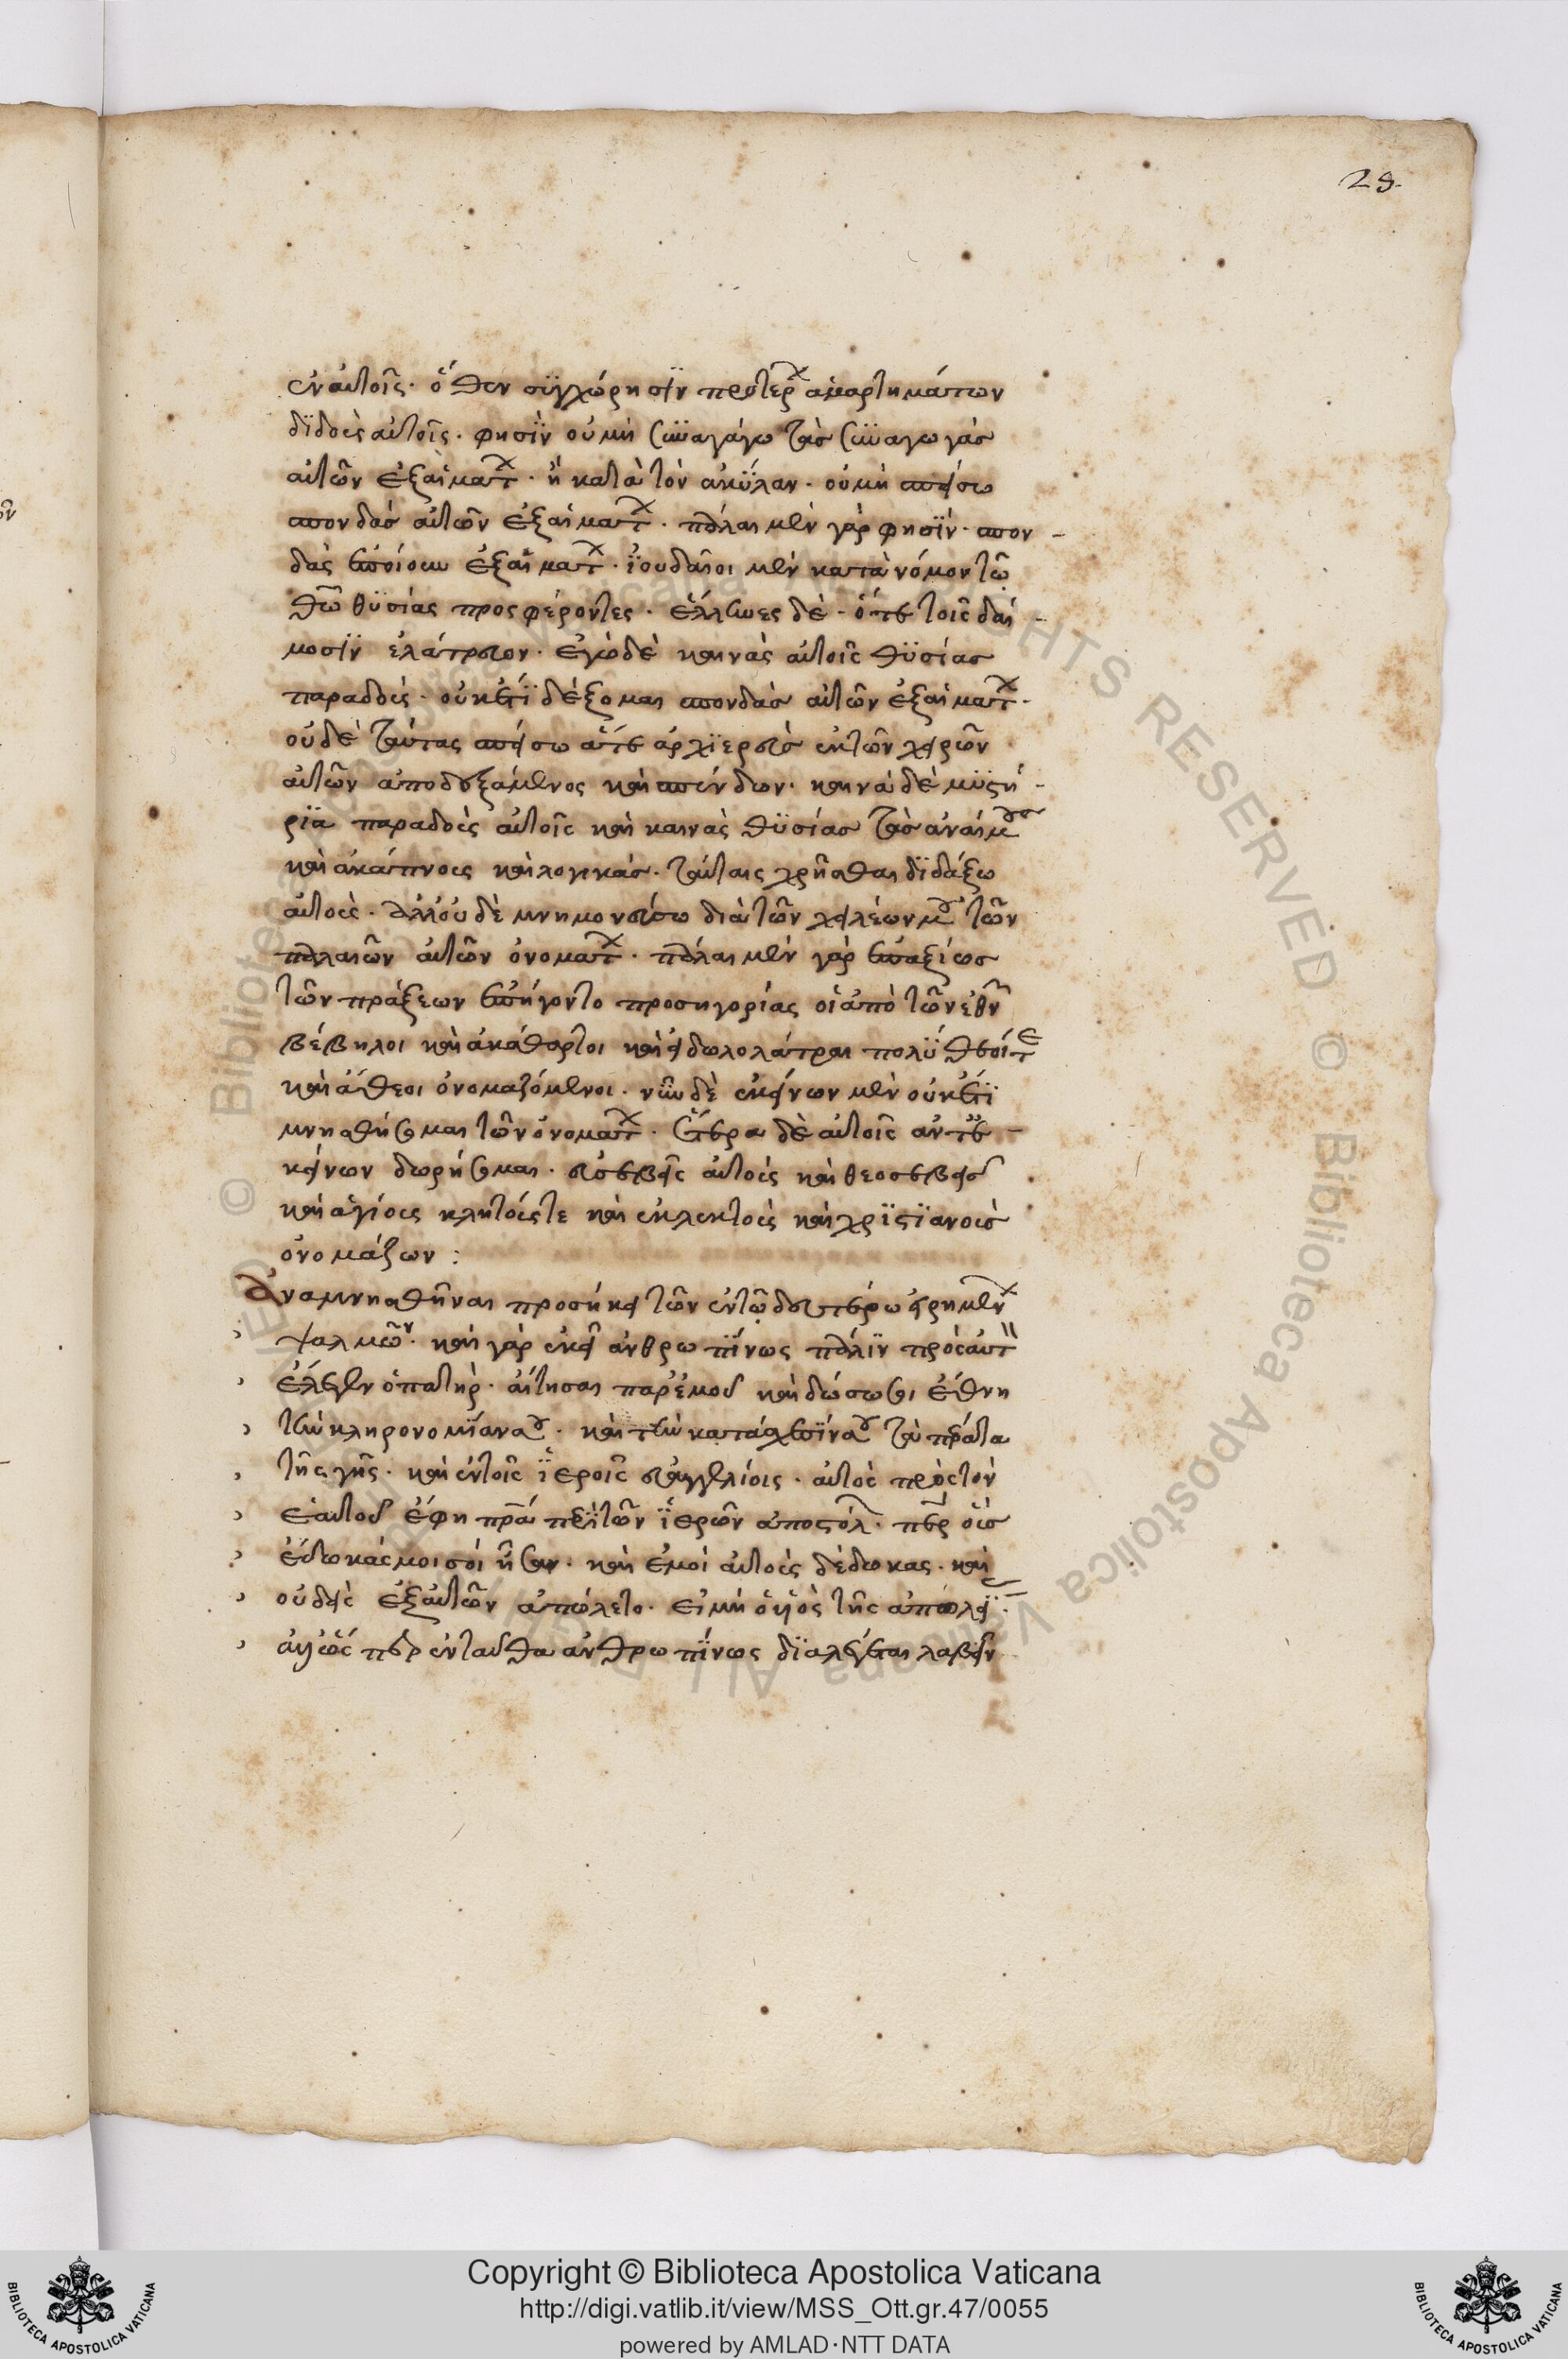 29.
ἐν αὐτοῖς· ὅθεν συγχώρησϊν προτέρ ἁμαρτημάτων
δϊδοὺς αὐτοῖς· φησϊν οὐ μὴ συναγάγω τὰς συναγωγὰς
αὐτῶν ἐξ αἱματ· ἢ κατὰ τὸν ἀκύλαν· οὐ μὴ σπείσω
σπονδὰς αὐτῶν ἐξ αἱματ· πάλαι μὲν γὰρ φησὶν· σπον-
δὰς ἐποίουν ἐξ αἱματ· ϊουδαῖοι μὲν κατὰ νόμον τῶ
θῶ θυσίας προσφέροντες· ἕλληνες δὲ· ὅτε τοῖς δαί-
μοσϊν ἐλάτρευον· ἐγὼ δὲ καινὰς αὐτοῖς θυσίας
παραδοὺς· οὐκέτϊ δέξομαι σπονδὰς αὐτῶν ἐξ αἱματ·
οὐδὲ ταύτας σπείσω ἅτε ἀρχϊερεὺς ἐκ τῶν χειρῶν
αὐτῶν ἀποδεξάμενος καὶ σπένδων· καινὰ δὲ μυστή-
ρϊα παραδοὺς αὐτοῖς καὶ καινὰς θυσίας τὰς ἀναίμους
καὶ ἀκάπνους καὶ λογικάς· ταύταις χρῆσθαι δϊδάξω
αὐτοὺς· ἀλλ' οὐδὲ μνημονεύσω διὰ τῶν χειλέων μου τῶν
παλαιῶν αὐτῶν ὀνοματ· πάλαι μὲν γὰρ ἐπαξίως
τῶν πράξεων ἐπήγοντο προσηγορίας οἱ ἀπὸ τῶν ἐθν
βέβηλοι καὶ ἀκάθαρτοι καὶ εἰδωλολάτραι πολύθεοίτε
καὶ ἄθεοι ὀνομαζόμενοι· νῦν δὲ ἐκείνων μὲν οὐκέτϊ
μνησθήσομαι τῶν ὀνοματ· ἕτερα δὲ αὐτοῖς ἀντε-
κείνων δωρήσομαι· εὐσεβεῖς αὐτοὺς καὶ θεοσεβεῖς
καὶ ἁγίους κλητούς τε καὶ ἐκλεκτοὺς καὶ χρϊστϊανοὺς
ὀνομάζων:
Ἀναμνησθῆναι προσήκει τῶν ἐν τῶ δευτέρω εἰρημεν
ψαλμῶν· καὶ γὰρ ἐκεῖ ἀνθρωπίνως πάλϊν πρὸς αὐτ
ἔλεγεν ὁ πατὴρ· αἴτησαι παρ' ἐμοῦ καὶ δώσω σοι ἔθνη
τὴν κληρονομίαν σου· καὶ τὴν κατάσχεσϊν σου τὰ πέρατα
τῆς γῆς· καὶ ἐν τοῖς ϊεροῖς εὐαγγελίοις· αὐτὸς πρὸς τὸν
ἑαυτοῦ ἔφη πρα περὶ τῶν ϊερῶν ἀποστόλ· περ οὓς
ἔδωκάς μοι σοὶ ἦσαν· καὶ ἐμοὶ αὐτοὺς δέδωκας· καὶ
οὐδεὶς ἐξ αὐτῶν ἀπώλετο· εἰ μὴ ὁ υἱὸς τῆς ἀπωλεί
περ ἐνταῦθα ἀνθρωπίνως διαλέγεται λαβεῖν
Copyright © Biblioteca Apostolica Vaticana
http://digi.vatlib.it/view/MSS_Ott.gr.47/0055
powered by AMLAD·NTT DATA